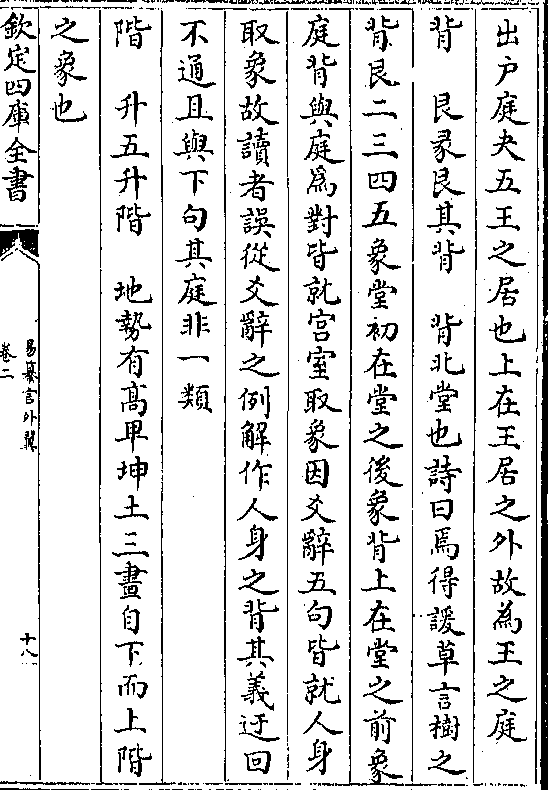 出户庭夬五王之居也上在王居之外故為王之庭
背　艮彖艮其背　背北堂也詩曰焉得諼草言樹之
背艮二三四五象堂初在堂之後象背上在堂之前象
庭背與庭爲對皆就宫室取象因爻辭五句皆就人身
取象故讀者誤從爻辭之例解作人身之背其義迂回
不通且與下句其庭非一類
階　升五升階　地勢有高卑坤土三畫自下而上階
之象也
欽定四庫全書
易纂言外翼
卷二
十八